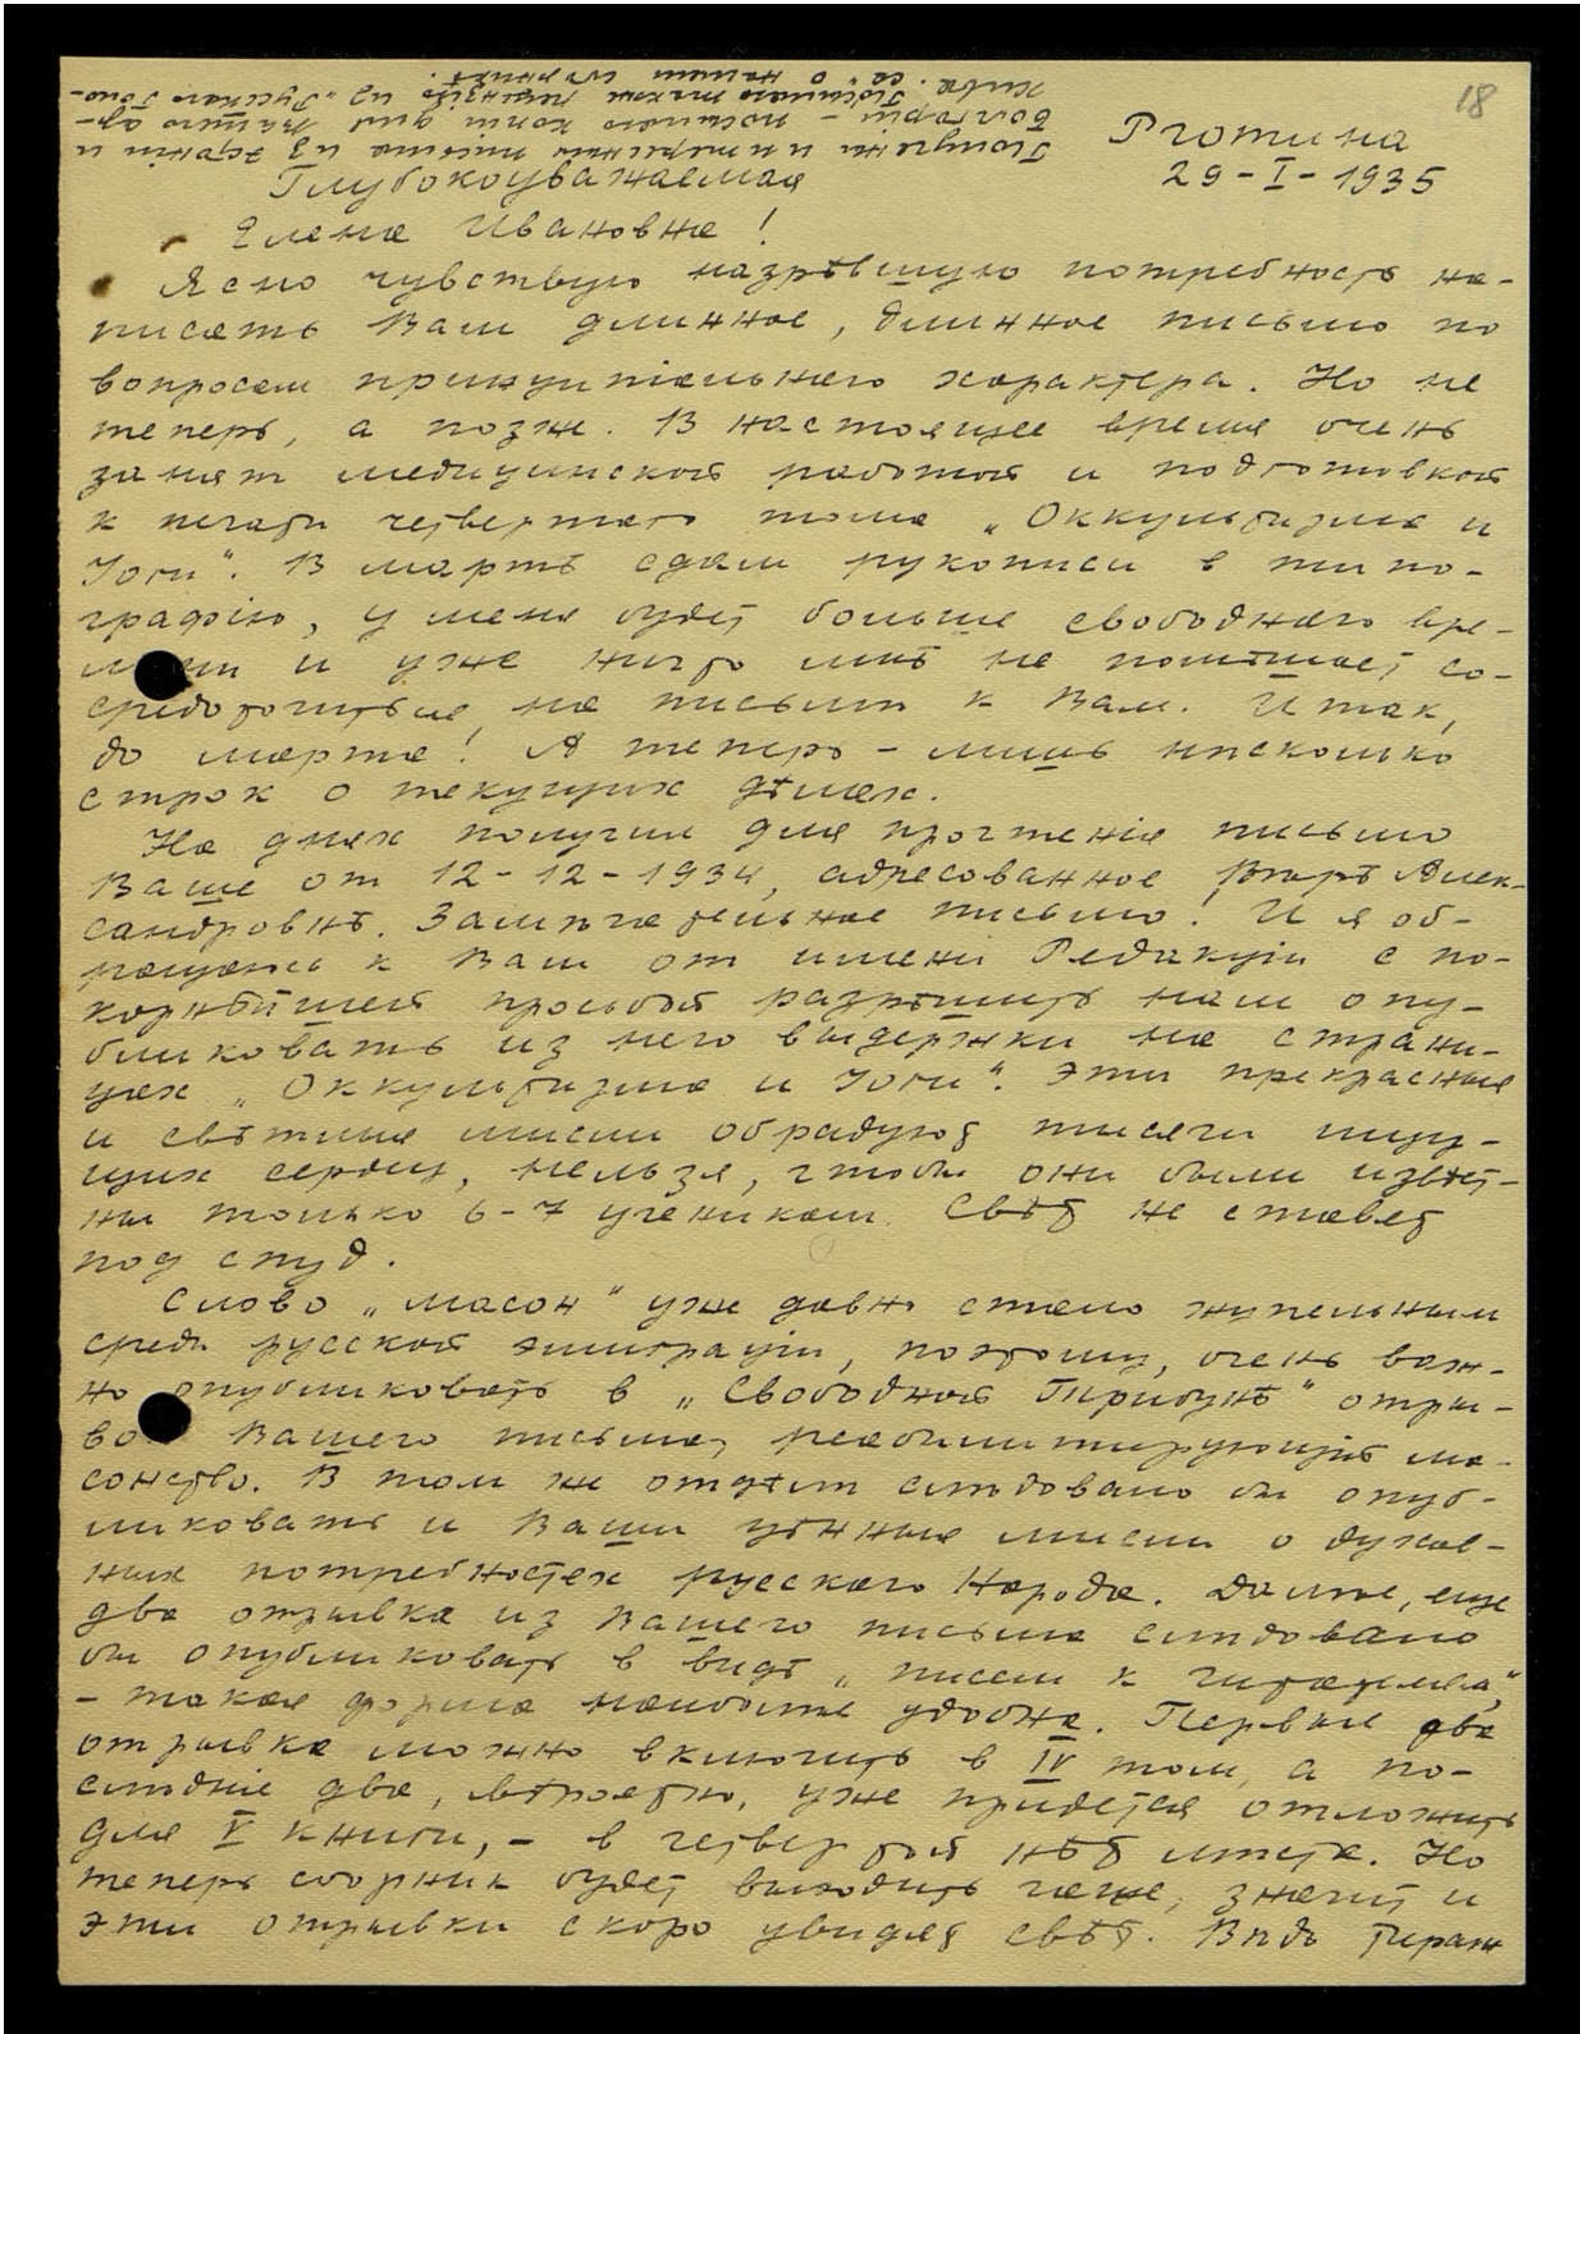 18
Рготина
29-I-1935
Получены интересныя письма из Эстоніи и
Болгаріи, - посылаю копіи для Вашего ар-
хива. Посылаю также рецензію из „Русского Голо-
са" о нашем сборникѣ.
Глубокоуважаемая
Елена Ивановна!
Ясно чувствую назрѣвшую потребность на-
писать Вам длинное, длинное письмо по
вопросам принципіальнаго характера. Но не
теперь, а позже. В настоящее время очень
занят медицинской работой и подготовкой
к печати четвертаго тома „Оккультизма и
Іоги". В мартѣ сдам рукописи в типо-
графію, у меня будет больше свободнаго вре-
мени и уже ничто мнѣ не помѣшает со-
средоточиться на письмѣ к Вам. Итак,
до марта! А теперь - лишь нѣсколько
строк о текущих дѣлах.
На днях получил для прочтенія письмо
Ваше от 12-12-1934, адресованное Вѣрѣ Алек-
сандровнѣ. Замѣчательное письмо! И я об-
ращаюсь к Вам от имени Редакціи с по-
корнѣйшей просьбой разрѣшить нам опу-
бликовать из него выдержки на страни-
цах „Оккультизма и Іоги". Эти прекрасныя
и свѣтлыя мысли обрадуют тысячи ищу-
щих сердец, нельзя, чтобы они были извѣст-
ны только 6-7 ученикам. Свѣт не ставят
под спуд.
Слово „масон" уже давно стало жупельным
среди русской эмиграціи, поэтому, очень важ-
но опубликовать в „Свободной Трибунѣ" отры-
вок Вашего письма, реабилитирующій ма-
сонство. В том же отдѣлѣ слѣдовало бы опуб-
ликовать и Ваши цѣнныя мысли о духов-
ных потребностях русскаго Народа. Далѣе, еще
два отрывка из Вашего письма слѣдовало
бы опубликовать в видѣ „писем к читателям",
- такая форма наиболѣе удобна. Первые два
отрывка можно включить в IV том, а по-
слѣдніе два, вѣроятно, уже придется отложить
для V книги, - в четвертой нѣт мѣста. Но
теперь сборник будет выходить чаще, значит и
эти отрывки скоро увидят свѣт. Вѣдь тираж